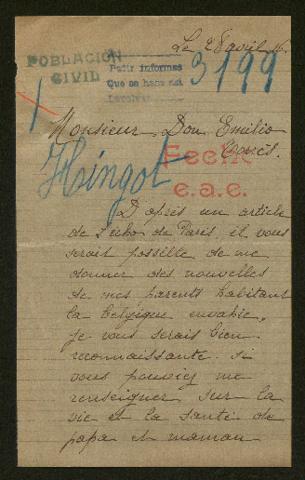 Le 28 avril 16.
POBLACION
CIVIL
Pedir informes
Que se haga así
3199
Monsieur Don Emilio
Torres.
Hingot
Fecho
e.a.c.
D'après un article
de l'echo de Paris, il vous
serait possible de me
donner des nouvelles
de mes parents habitant
la belgique envahie,
je vous serais bien
reconnaissante si
vous pouviez me
renseigner sur la
vie et la santé de
papa et maman